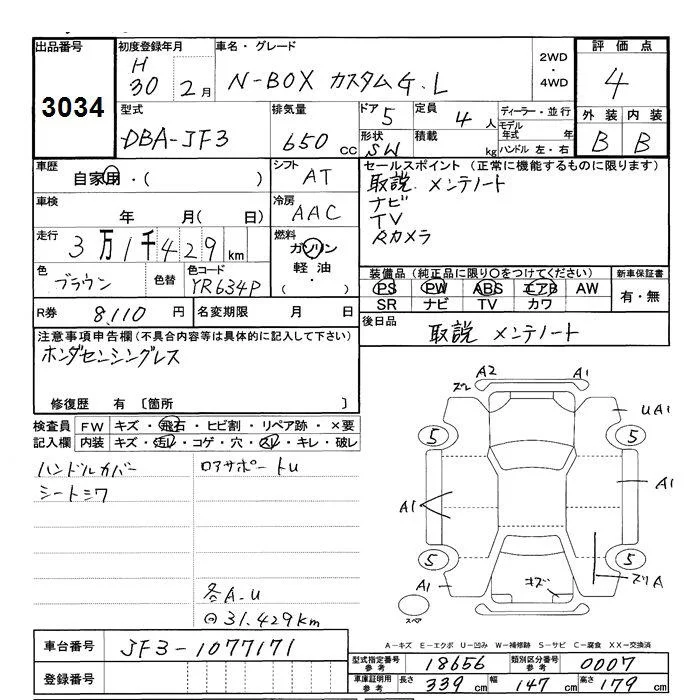 出品番号
3034
初度登録年月
H
30 2月
車名・グレード
N-BOX カスタムG.L
2WD
・
4WD
評価点
4
外装 内装
B B
型式
DBA-JF3
排気量
650 cc
ドア 5
形状 SW
定員 4人
積載 kg
ディーラー・並行
モデル年式 年
ハンドル 左・右
車歴
自家用・( )
車検
年 月( 日)
走行
3万1千429km
色
ブラウン
色替
色コード
YR634P
シフト
AT
冷房
AAC
燃料
ガソリン
軽油・
( )
セールスポイント(正常に機能するものに限ります)
取説 メンテノート
ナビ
TV
Rカメラ
装備品(純正品に限り○をつけてください)
PS PW ABS エアB AW
SR ナビ TV カワ
新車保証書
有・無
R券 8,110円
名変期限 月 日
後日品
取説 メンテノート
注意事項申告欄(不具合内容等は具体的に記入して下さい)
ホンダセンシングレス
修復歴 有〔箇所 〕
検査員記入欄
FW キズ・飛石・ヒビ割・リペア跡・×要
内装 キズ・汚レ・コゲ・穴・スレ・キレ・破レ
ハンドルカバー
シートシワ
ロアサポートU
各A.U
31.429km
スレ A2 A1
UA1
5 5
A1 A1
5 5
A1 キズ スリA
スペア
A-キズ E-エクボ U-凹み W-補修跡 S-サビ C-腐食 XX-交換済
車台番号 JF3-1077171
登録番号
型式指定番号参考 18656
類別区分番号参考 0007
車庫証明用参考 長さ 339cm 幅 147cm 高さ 179cm